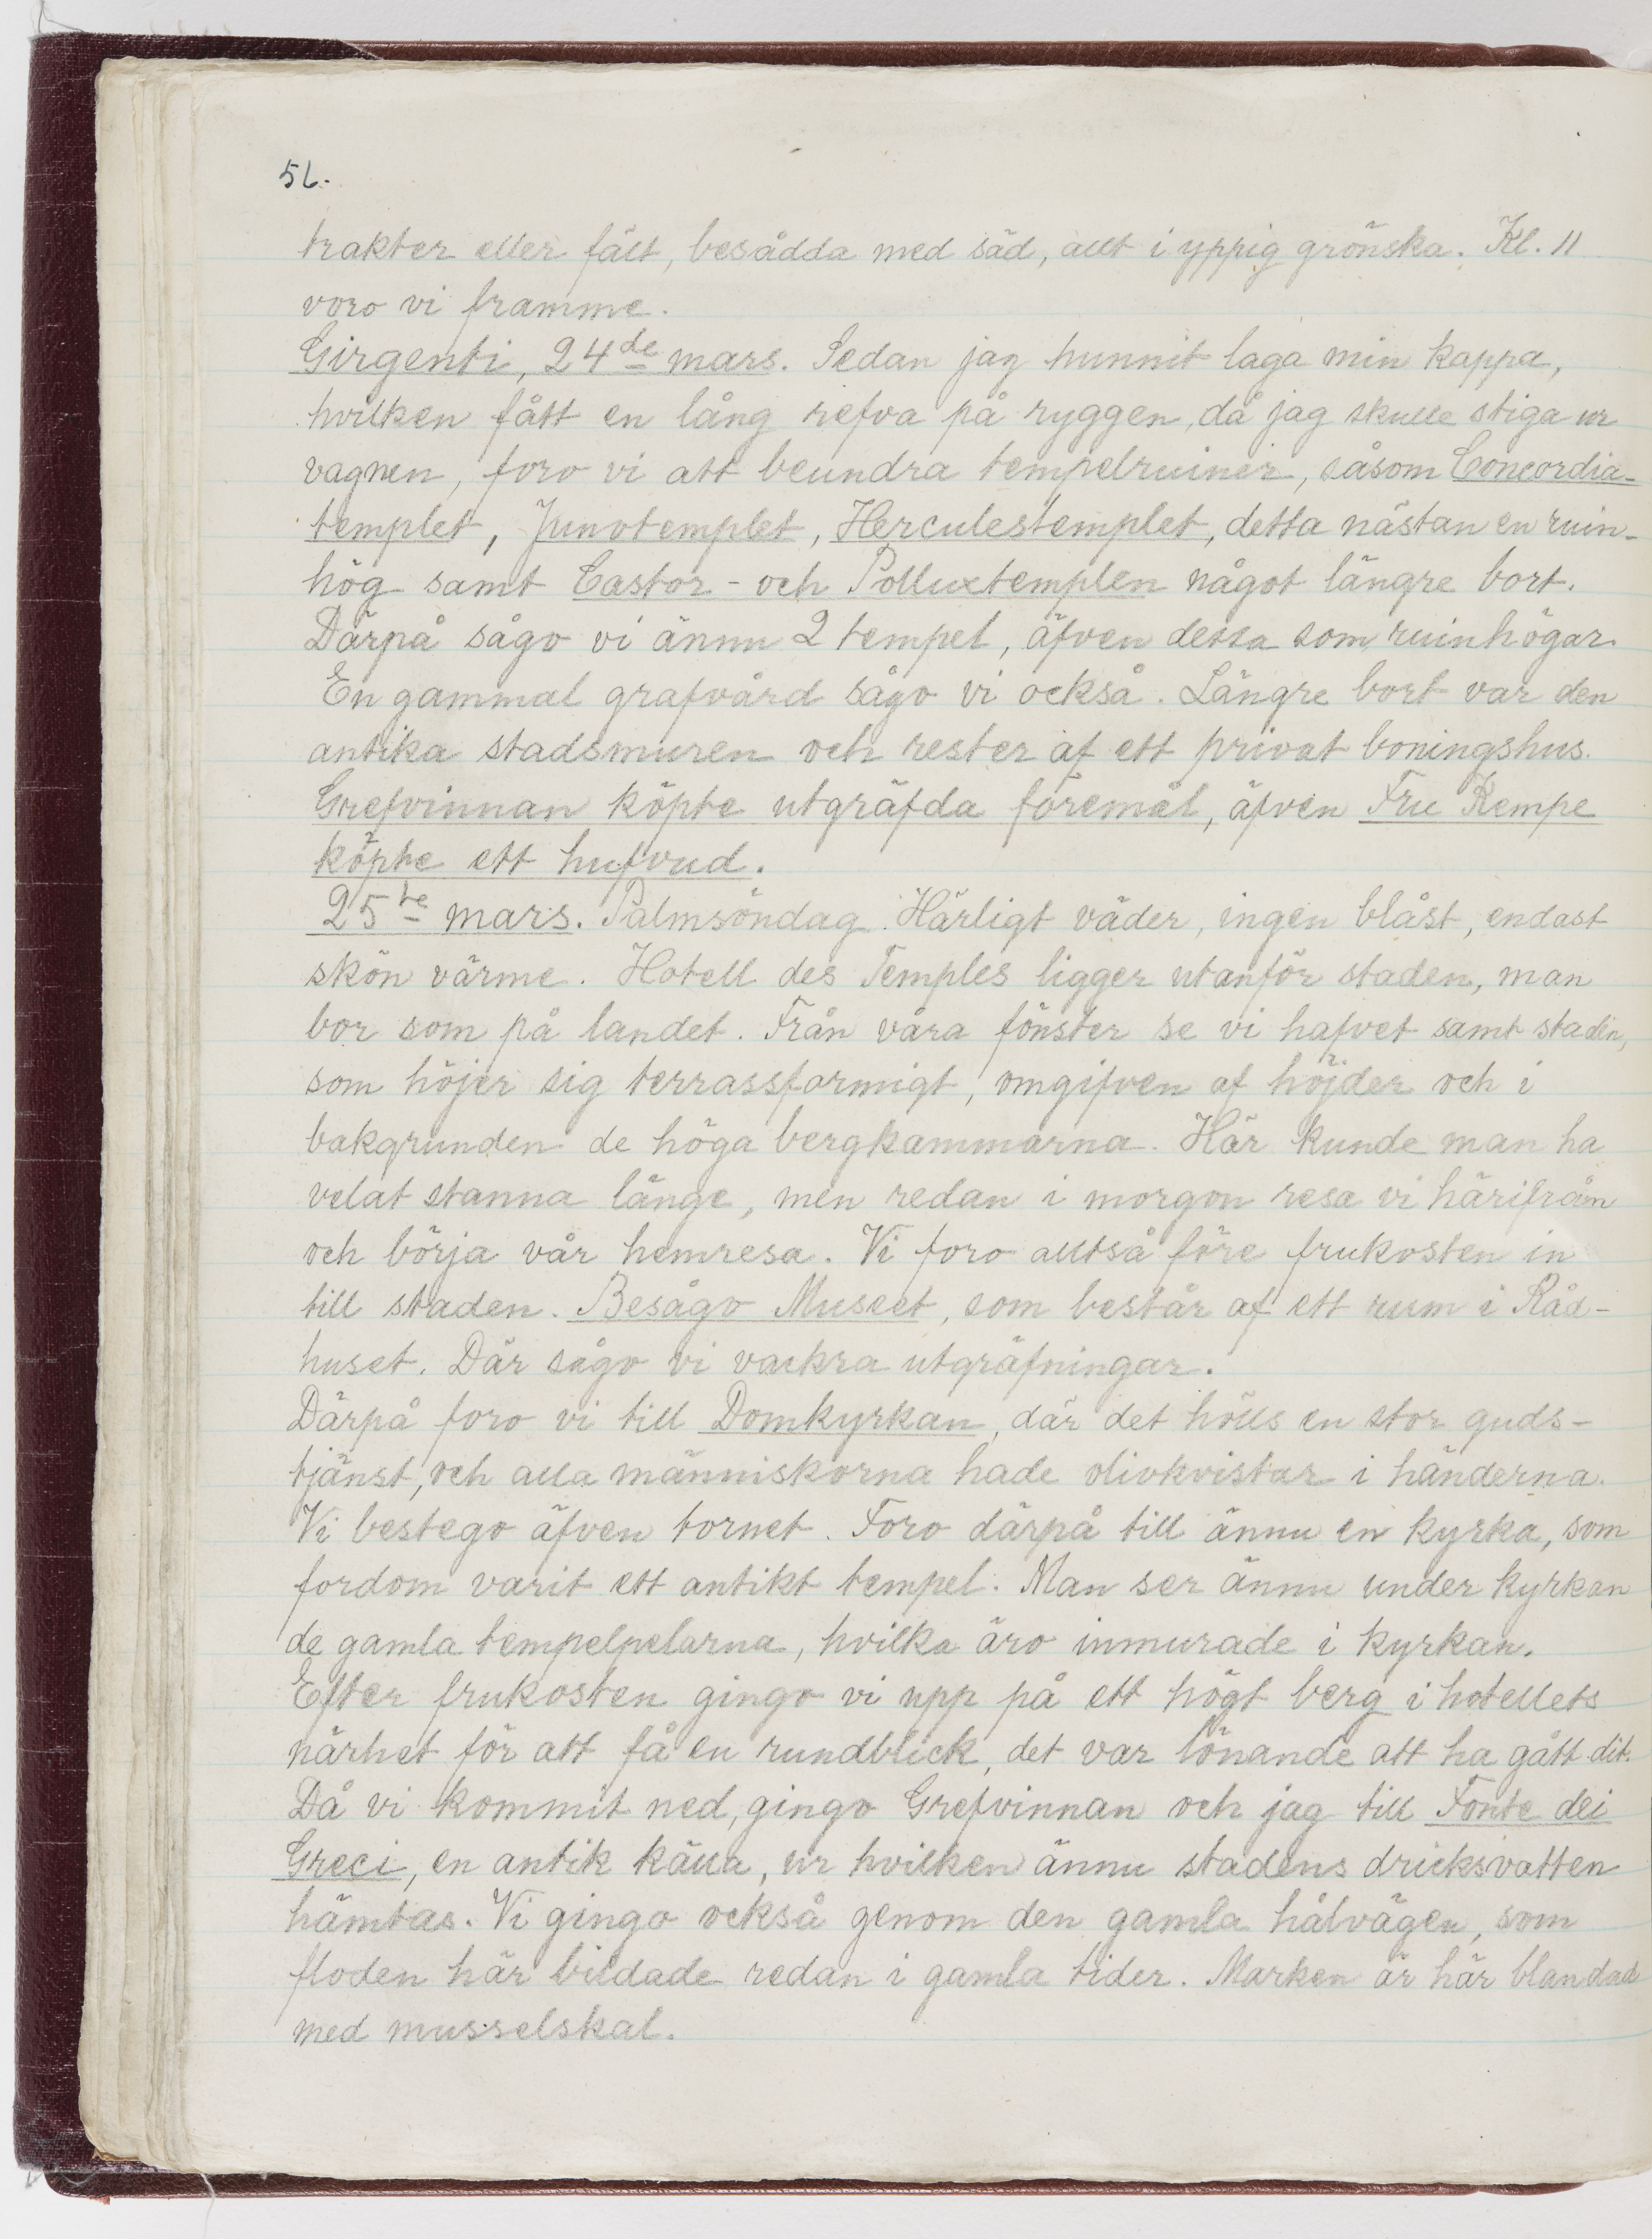 56.
trakter eller fält, besådda med säd, allt i yppig grönska. Kl. 11
voro vi framme.
Girgenti, 24de mars. Sedan jag hunnit laga min kappa,
hvilken fått en lång refva på ryggen, då jag skulle stiga ur
vagnen, foro vi att beundra tempelruiner, såsom Concordia-
templet, Junotemplet, Herculestemplet, detta nästan en ruin-
hög samt Castor- och Polluxtemplen något längre bort.
Därpå sågo vi ännu 2 tempel, äfven dessa som ruinhögar.
En gammal grafvård sågo vi också. Längre bort var den
antika stadsmuren och rester af ett privat boningshus.
Grefvinnan köpte utgräfda föremål, äfven Fru Kempe
köpte ett hufvud.
25te mars. Palmsöndag. Härligt väder, ingen blåst, endast
skön värme. Hotell des Temples ligger utanför staden, man
bor som på landet. Från våra fönster se vi hafvet samt staden,
som höjer sig terrassformigt, omgifven af höjder och i
bakgrunden de höga bergkammarna. Här kunde man ha
velat stanna länge, men redan i morgon resa vi härifrån
och börja vår hemresa. Vi foro alltså före frukosten in
till staden. Besågo Museet, som består af ett rum i Råd-
huset. Där sågo vi vackra utgräfningar.
Därpå foro vi till Domkyrkan, där det hölls en stor guds-
tjänst, och alla människorna hade olivkvistar i händerna.
Vi bestego äfven tornet. Foro därpå till ännu en kyrka, som
fordom varit ett antikt tempel. Man ser ännu under kyrkan
de gamla tempelpelarna, hvilka äro inmurade i kyrkan.
Efter frukosten gingo vi upp på ett högt berg i hotellets
närhet för att få en rundblick, det var lönande att ha gått dit.
Då vi kommit ned, gingo Grefvinnan och jag till Fonte dei
Greci, en antik källa, ur hvilken ännu stadens dricksvatten
hämtas. Vi gingo också genom den gamla hålvägen, som
floden här bildade redan i gamla tider. Marken är här blandad
med musselskal.